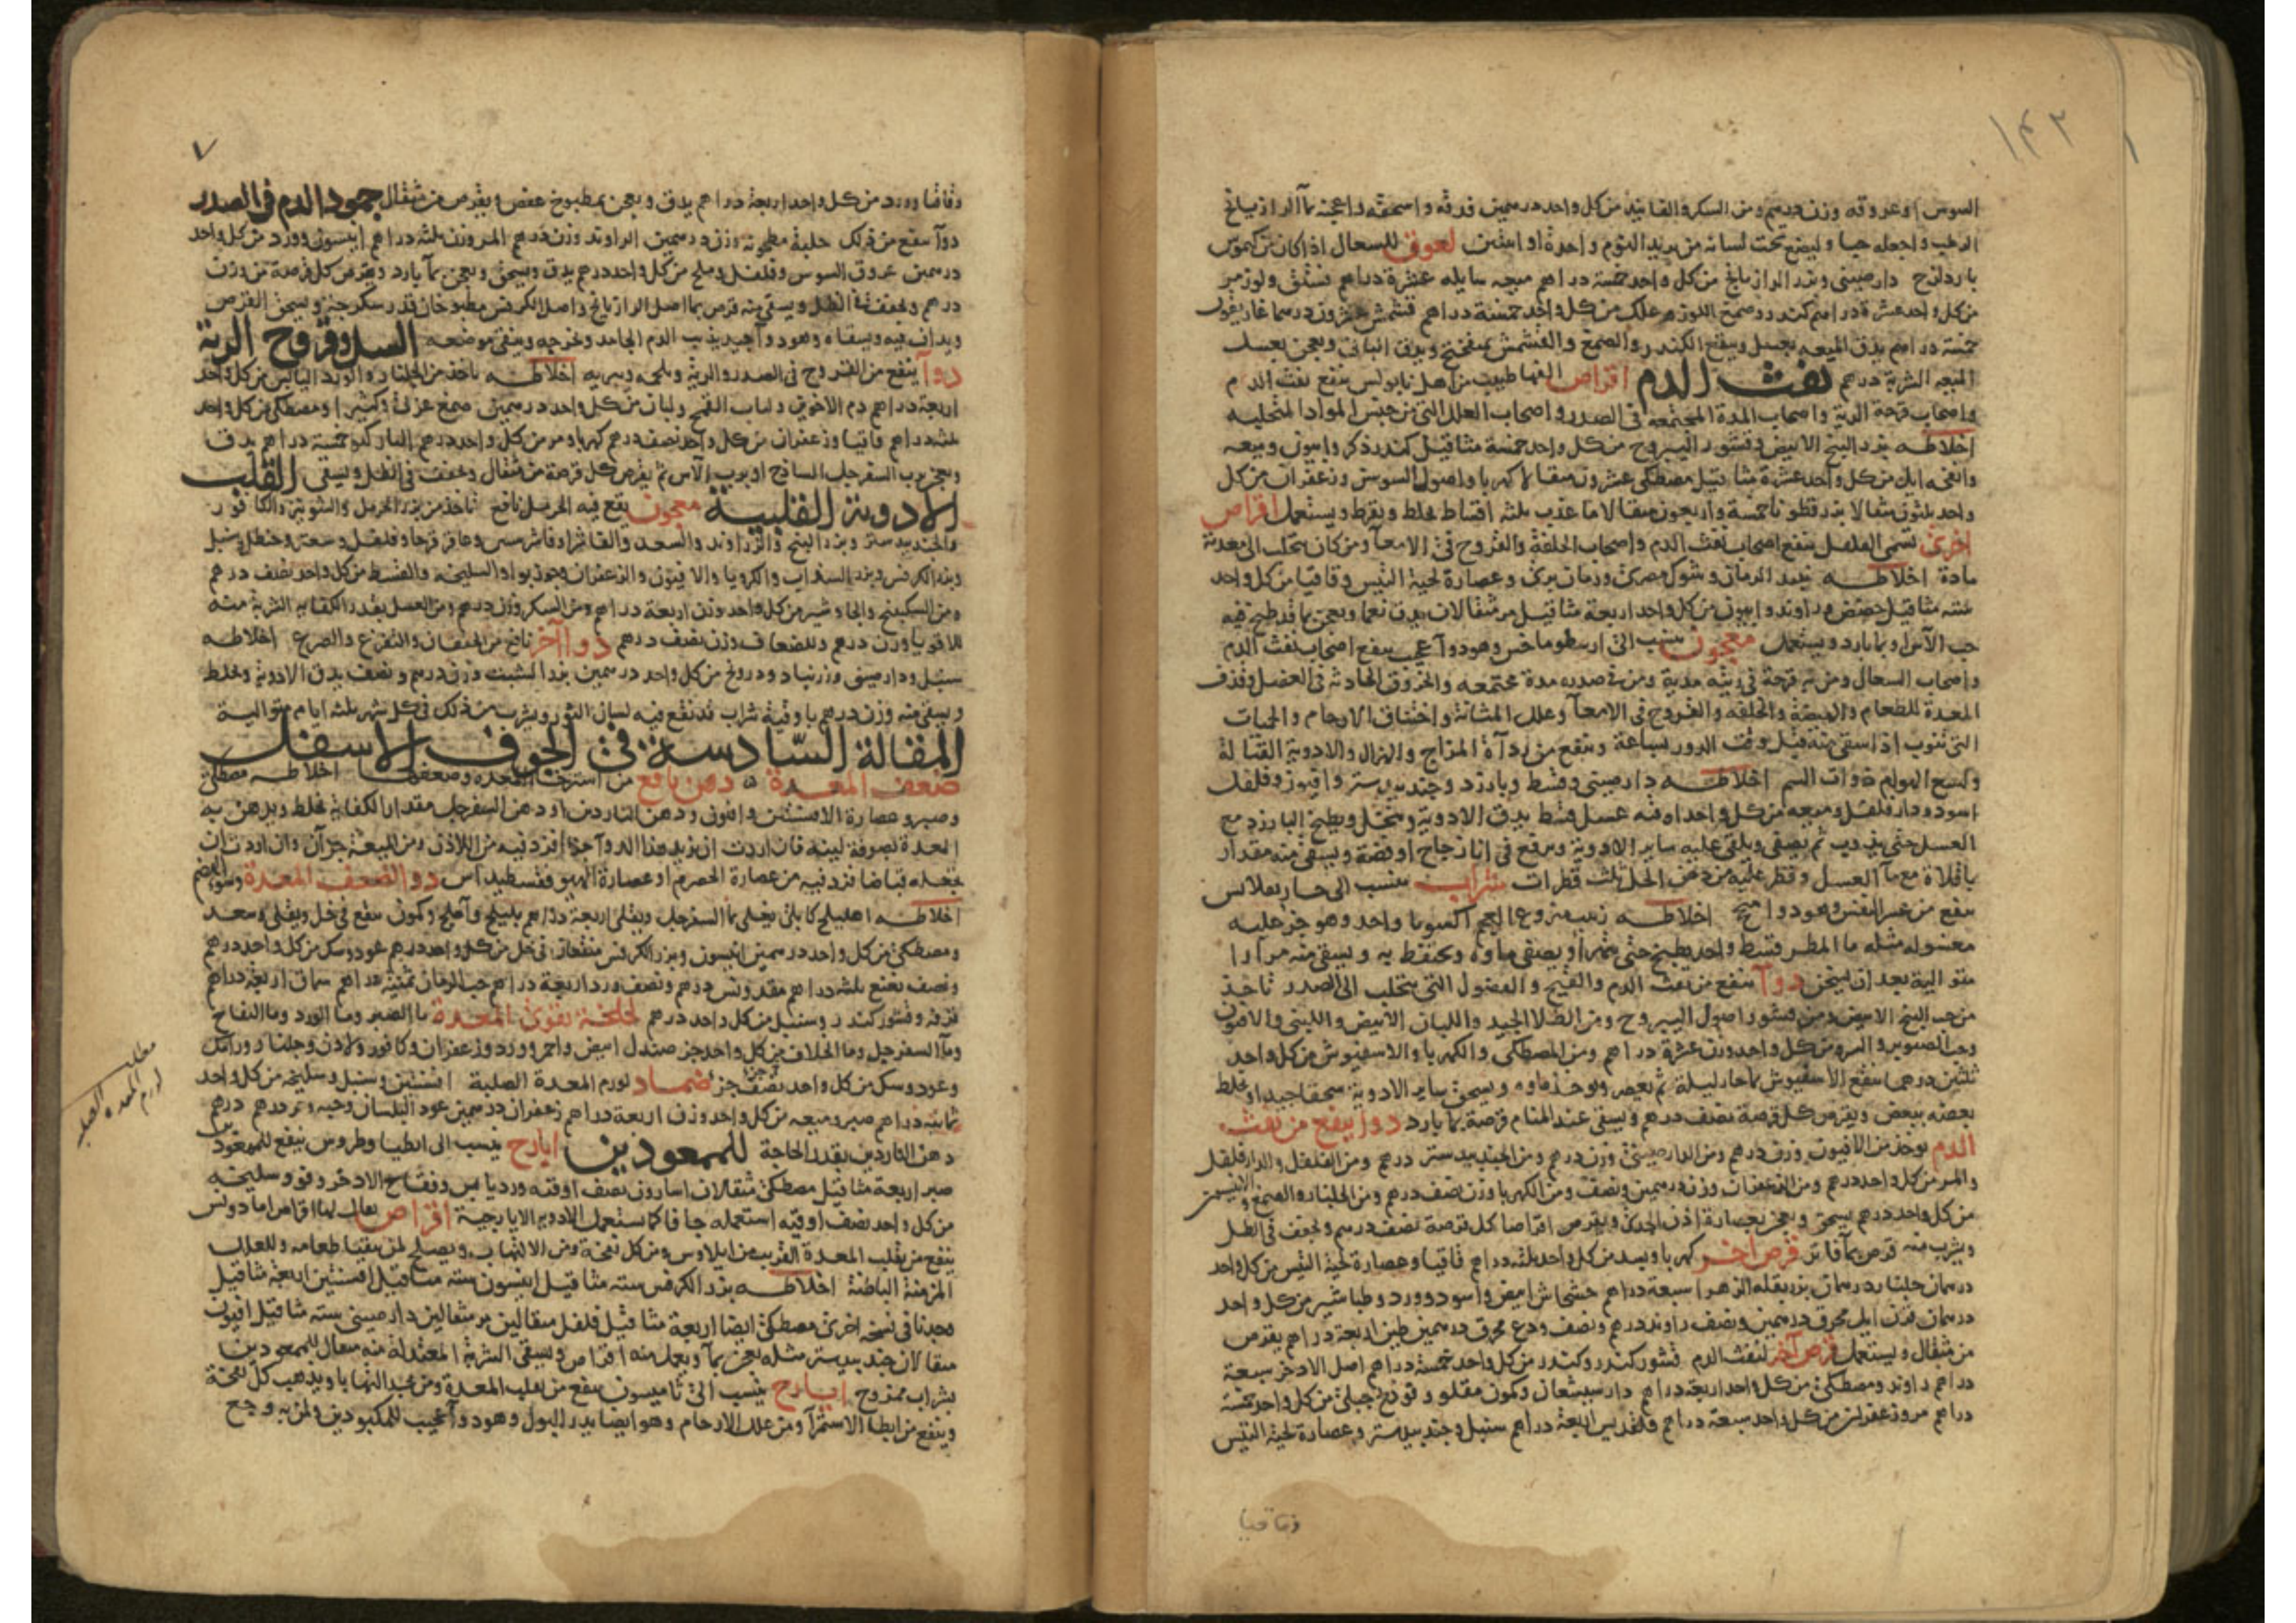 ١٤٢
السوس او عروقه وزن درهم ومن السكر والفانيذ من كل واحد درهمين فدقه واسحقه واعجنه بماء الرازيانج
الرطب واجعله حبا وليضع تحت لسانه من يريد النوم واحدة او اثنتين لعوق للسعال اذا كان من كيموس
بارد لزج دارصيني وبزر الرازيانج من كل واحد خمسة دراهم ميعه سايله عشرة دراهم فستق ولوز مر
من كل واحد عشرة دراهم كندر وصمغ اللوز وعلك من كل واحد خمسة دراهم قشمش عشرون درهما غاريقون
خمسة دراهم يدق الميعه بعسل وينقع الكندر والصمغ والقشمش بميفختج ويدق الباقي ويعجن بعسل
الميعه الشربة درهم نفث الدم اقراص الفها طبيب من اهل نابولس ينفع نفث الدم
واصحاب قرحة الرية واصحاب المدة المجتمعه في الصدر واصحاب العلل التي من جنس المواد المتحلبه
اخلاطه بزر البنج الابيض وقشور اليبروح من كل واحد خمسة مثاقيل كندر ذكر وانيسون وميعه
من كل واحد عشرة مثاقيل مصطكي عشرون مثقالا كهربا واصول السوسن وزعفران من كل
واحد ثلثون مثقالا بزر قطونا خمسة واربعون مثقالا ماء عذب ثلثه اقساط يخلط ويقرص ويستعمل اقراص
اخرى تسمى الفلفل ينفع اصحاب نفث الدم واصحاب الخلفة والقروح في الامعاء ومن كان يتحلب الى معدته
مادة اخلاطه نبيذ الرمان وشوك مصري ورمان بري وعصارة لحية التيس وقاقيا من كل واحد
سته مثاقيل حضض وراوند وافيون من كل واحد اربعة مثاقيل مر مثقالان يدق نعما ويعجن بماء قد طبخ فيه
حب الآس او بماء بارد ويستعمل معجون ينسب الى ارسطوماخس وهو دواء عجيب ينفع اصحاب نفث الدم
واصحاب السعال ومن به قرحة في ريته مدية ومن في صدره مدة مجتمعه والخروق الحادثه في العضل وقذف
المعدة للطعام والهيضة والخلفه والقروح في الامعاء وعلل المثانة واختناق الارحام والحميات
التي تنوب اذا سقي منه قبل وقت الدور بساعة وينفع من رداءة المزاج والهزال والادوية القتالة
ولسع الهوام ذوات السم اخلاطه دارصيني وقسط وبارزد وجندبيدستر وافيون وفلفل
اسود ودار فلفل وميعه من كل واحد اوقيه عسل قسط يدق الادوية وينخل ويطبخ البارزد مع
العسل حتى يذوب ثم يصفى ويلقى عليه ساير الادوية ويرفع في اناء زجاج او فضة ويسقى منه مقدار
باقلاة مع ماء العسل وقطر عليه من دهن الخل ثلث قطرات شراب ينسب الى
ينفع من عسر النفس وهو دواء اخلاطه زبيب منزوع العجم اكسوبافا واحد وهو جزء عليه
معسوله مثله ماء المطر قسط واحد يطبخ حتى يتهرا ويصفى ماوه ويحتفظ به ويسقى منه مرارا
متوالية بعد ان يسخن دواء ينفع من نفث الدم والقيح والفضول التي يتحلب الى الصدر تاخذ
من حب البنج الابيض ومن قشور اصول اليبروح ومن الطلاء الجيد واللبان الابيض واللبنى والافيون
وحب الصنوبر والمر من كل واحد وزن عشرة دراهم ومن المصطكى والكهربا والاسفيوش من كل واحد
ثلثين درهما ينقع الاسفيوش بماء حار ليلة ثم يعصر ويوخذ ماوه ويسحق ساير الادوية سحقا جيدا ويخلط
بعضه ببعض ويقرص كل قرصة نصف درهم ويسقى عند المنام قرصة بماء بارد دواء ينفع من نفث
الدم يوخذ من الافيون وزن درهم ومن الدارصيني وزن درهم ومن الجندبيدستر درهم ومن الفلفل والدار فلفل
والمر من كل واحد درهم ومن الزعفران وزن درهمين ونصف ومن الكهربا وزن نصف درهم ومن الجلنار والصمغ والانيسون
من كل واحد درهم يسحق ويعجن بعصارة اذن الجدي ويقرص اقراصا كل قرصة نصف درهم ويجفف في الظل
ويشرب منه قرص بماء فاتر قرص اخر كهربا وبسد من كل واحد ثلثه دراهم قاقيا وعصارة لحية التيس من كل واحد
درهمان جلنار درهمان بزر بقلة الزهرا سبعة دراهم خشخاش ابيض واسود وورد وطباشير من كل واحد
درهمان قرن ايل محرق درهمين ونصف راوند درهم ونصف ودع محرق درهمين طين اربعة دراهم يقرص
من مثقال ويستعمل قرص آخر لنفث الدم قشور كندر وكندر من كل واحد خمسة دراهم اصل الاذخر سبعة
دراهم راوند ومصطكى من كل واحد اربعة دراهم دارسيسعان وكمون مقلو وفوذنج جبلي من كل واحد خمسة
دراهم مر وزعفران من كل واحد سبعة دراهم قلقديس اربعة دراهم سنبل وجندبيدستر وعصارة لحية التيس
وقاقيا
٧
وقاقيا وورد من كل واحد اربعة دراهم يدق ويعجن بمطبوخ عفص ويقرص من مثقال جمود الدم في الصدر
دواء ينفع من ذلك حلبة مطحونه وزن درهمين الراوند وزن درهم المر وزن ثلثه دراهم انيسون وورد من كل واحد
درهمين عروق السوس وفلفل وملح من كل واحد درهم يدق ويسحق ويعجن بماء بارد ويقرص كل قرصة من وزن
درهم ويجفف في الظل ويسقى منه قرص بماء اصل الرازيانج واصل الكرفس مطبوخان قدر سكرجة ويسحق القرص
ويداف فيه ويسقاه وهو دواء جيد يذيب الدم الجامد ويخرجه وينقي موضعه السل وقروح الرية
دواء ينفع من القروح في الصدر والرية ويلحمه ويبريه اخلاطه ياخذ من الجلنار والورد اليابس من كل واحد
اربعة دراهم دم الاخوين ولباب القمح ولبان من كل واحد درهمين صمغ عربي وكثيرا ومصطكى من كل واحد
ثلثه دراهم قاقيا وزعفران من كل واحد نصف درهم كهربا ومر من كل واحد درهم خمسة دراهم يدق
ويعجن برب السفرجل الساذج او برب الآس ثم يقرص كل قرصة من مثقال ويجفف في الظل ويسقى القلب
الادوية القلبية معجون يقع فيه الحرمل نافع تاخذ من بزر الحرمل والشونيز والكافور
والجندبيدستر وبزر البنج والزراوند والسعد والفاشرا وفاشرستين وعاقرقرحا وفلفل وسعتر وحنظل وسنبل
وبزر الكرفس وبزر السذاب والكرويا والافيون والزعفران وجوز بوا والسليخه والقسط من كل واحد نصف درهم
ومن السكبينج والجاوشير من كل واحد وزن اربعة دراهم ومن السكر وزن درهم ومن العسل بقدر الكفاية الشربة منه
للاقويا وزن درهم وللضعاف وزن نصف درهم دواء آخر نافع من الخفقان والتفزع والصرع اخلاطه
سنبل ودارصيني وزرنباد ودرونج من كل واحد درهمين بزر الشبث وزن درهم ونصف يدق الادوية ويخلط
ويسقى منه وزن درهم باوقية شراب قد نقع فيه لسان الثور ويشرب من ذلك في كل شهر ثلثه ايام متوالية
المقالة السادسة في الجوف الاسفل
ضعف المعدة دهن نافع من استرخاء المعدة وضعفها اخلاطه مصطكى
وصبر وعصارة الافسنتين وافيون ودهن الناردين او دهن السفرجل مقدار الكفاية يخلط ويدهن به
المعدة بصوفة لينه فان اردت ان يزيد هذا الدواء فزد فيه من اللاذن ومن الميعة جزآن وان اردت ان
تجعله قباضا فزد فيه من عصارة الحصرم او عصارة الهيوفسطيداس دواء لضعف المعدة وسوء الهضم
اخلاطه اهليلج كابلي يغلى بماء السفرجل ويقلى اربعة دراهم بليلج واملج وكمون ينقع في خل ويقلى وسعد
ومصطكى من كل واحد درهمين انيسون وبزر الكرفس منقعان في خل من كل واحد درهم عود وسك من كل واحد درهم
ونصف نعنع ثلثه دراهم مقدونس درهم ونصف ورد اربعة دراهم حب الرمان ثمنية دراهم سماق اربعة دراهم
قرفه وقشور كندر وسنبل من كل واحد درهم لخلخة تقوي المعدة ماء الصبر وماء الورد وماء التفاح
وماء السفرجل وماء الخلاف من كل واحد جزء صندل ابيض واحمر وورد وزعفران وكافور ولاذن وجلنار ورامك
وعود وسك من كل واحد نصف جزء ضماد لورم المعدة الصلبة افسنتين وسنبل وسليخه من كل واحد
ثمانية دراهم صبر وميعه من كل واحد وزن اربعة دراهم زعفران درهمين عود البلسان وحبه ومر درهم درهم
دهن الناردين بقدر الحاجة للممعودين ايارج ينسب الى انطياوطروس ينفع للممعودين
صبر اربعة مثاقيل مصطكى مثقالان اسارون نصف اوقيه ورد يابس وفقاح الاذخر وفو وسليخه
من كل واحد نصف اوقيه استعمله جافا كما ستعمل الادوية الايارجية اقراص يقال لها اقراص امادونس
ينفع من تقلب المعدة القريب من ايلاوس ومن كل نفخة ومن الالتهاب ويصلح لمن يتقيا طعامه وللعلل
المزمنة الباطنة اخلاطه بزر الكرفس سته مثاقيل انيسون سته مثاقيل افسنتين اربعة مثاقيل
وجدنا في نسخه اخرى مصطكى ايضا اربعة مثاقيل فلفل مثقالين مر مثقالين دارصيني سته مثاقيل افيون
مثقالان جندبيدستر مثله يعجن بماء ويعمل منه اقراص ويسقى الشربة المعتدلة منه مثقال للممعودين
بشراب ممزوج ايارج ينسب الى ثاميسون ينفع من تقلب المعدة ومن يجد التهابا ويذهب كل نفخة
وينفع من ابطا الاستمرآ ومن علل الارحام وهو ايضا يدر البول وهو دواء عجيب للمكبودين ولمن به وجع
مطلب
ورم المعده الصلبه